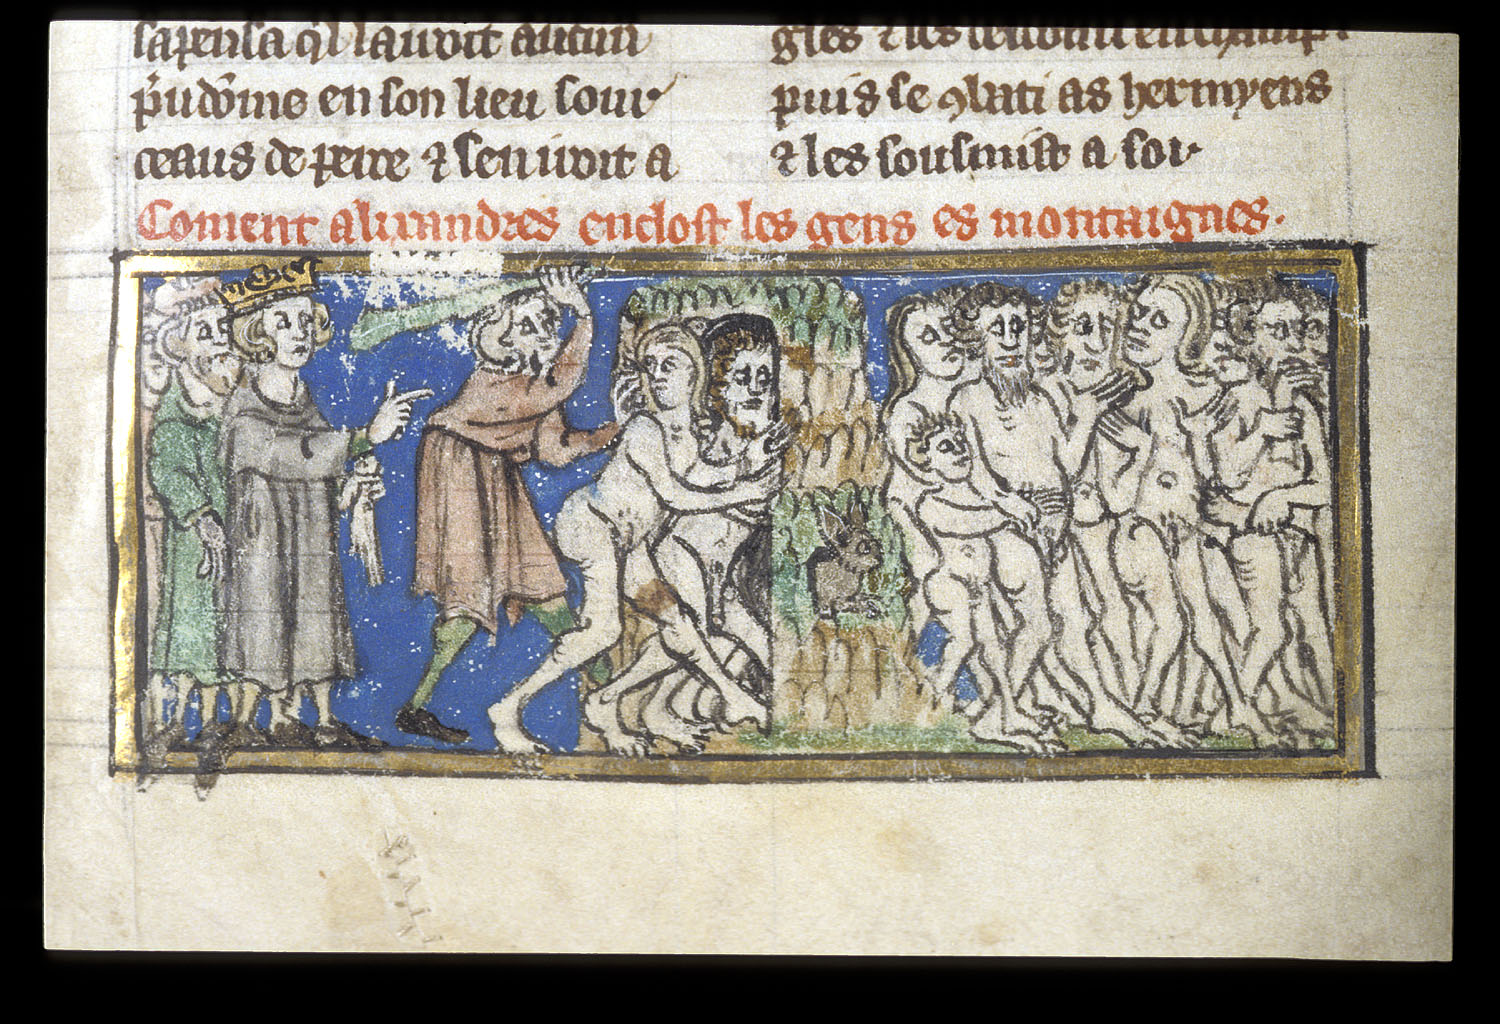 sapensa q'l lauroit aucun
p'udome en son lieu sour
ceaus de perce ⁊ sen uoit a
gies ⁊ les
puis se 9bati as hermyens
⁊ les sousmist a soi
Coment alixandres enclost les gens es montaignes.